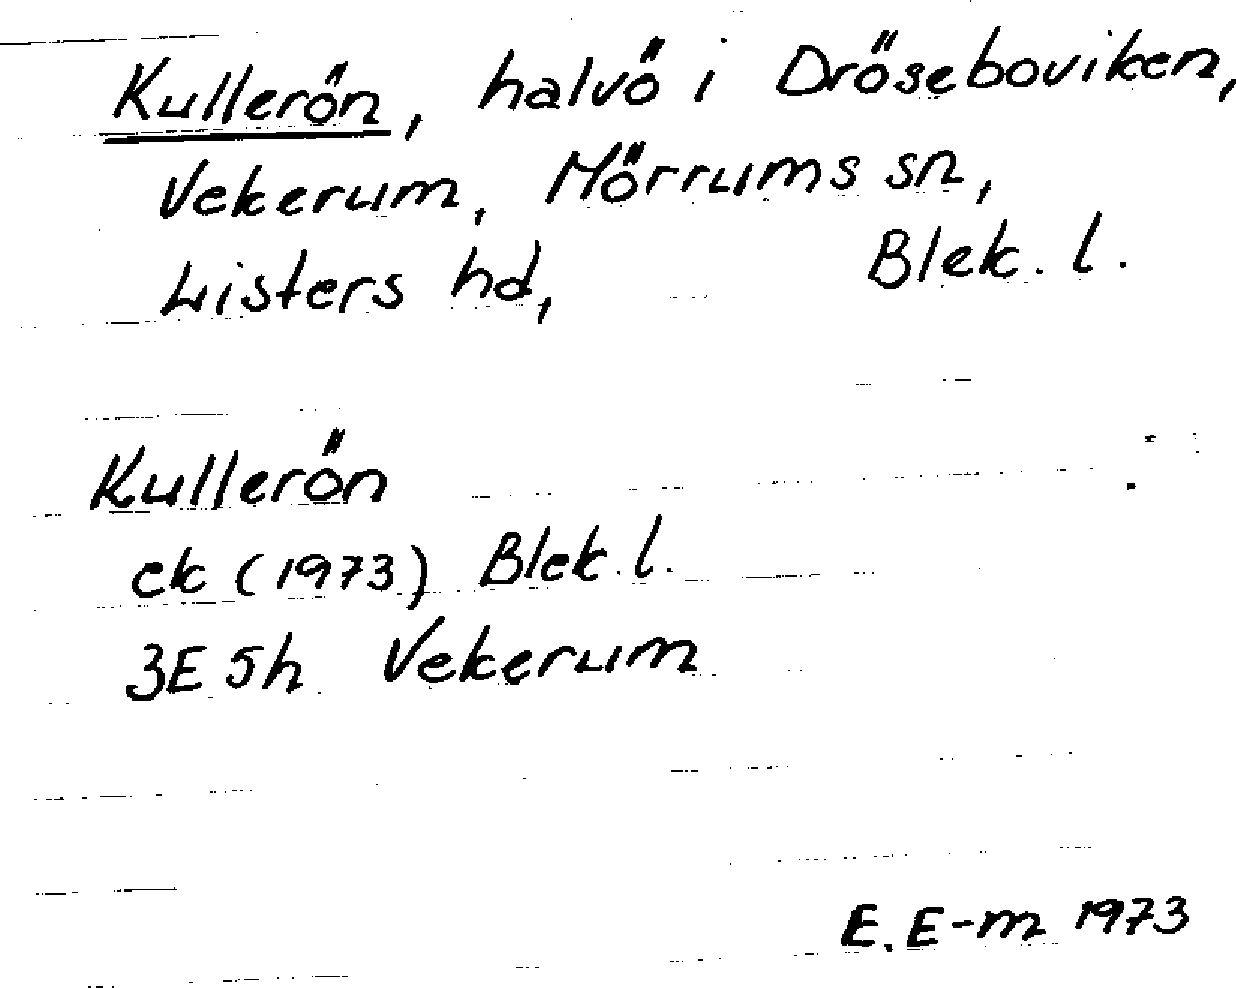 Kullerön, halvö i Dröseboviken,
Vekerum, Mörrums sn,
Listers hd, Blek. l.
Kullerön
ek (1973) Blek. l.
3E 5h Vekerum
E. E-m 1973